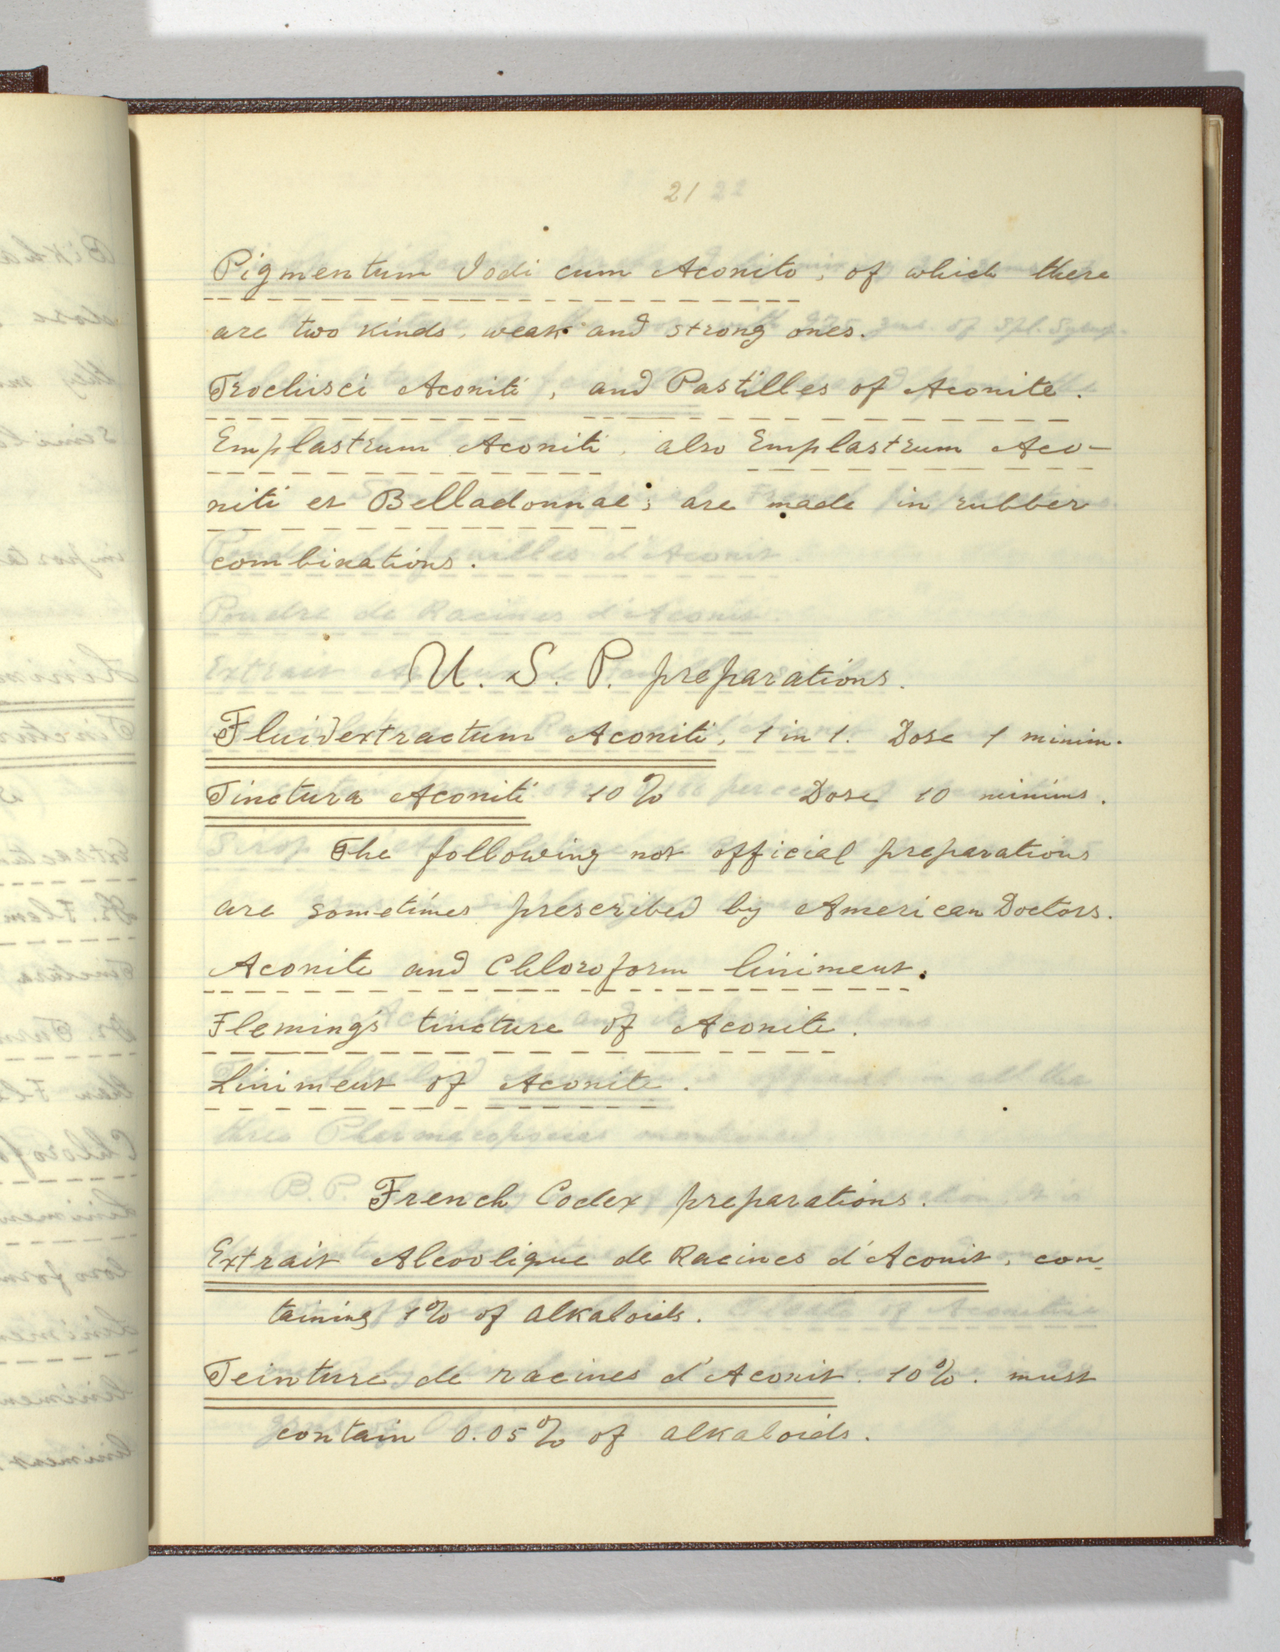 21
Pigmentum Iodi cum Aconito, of which there
are two kinds, weak and strong ones.
Trochisci Aconiti, and Pastilles of Aconite.
Emplastrum Aconiti, also Emplastrum Aco-
niti et Belladonnae; are made in rubber
combinations.
U. S. P. preparations.
Fluidextractum Aconiti, 1 in 1. Dose 1 minim.
Tinctura Aconiti 10% Dose 10 minims.
The following not official preparations
are sometimes prescribed by American Doctors.
Aconite and Chloroform liniment.
Fleming's tincture of Aconite.
Liniment of Aconite.
French Codex preparations.
Extrait Alcoolique de Racines d'Aconit, con-
taining 1% of alkaloids.
Teinture de racines d'Aconit. 10%. must
contain 0.05% of alkaloids.